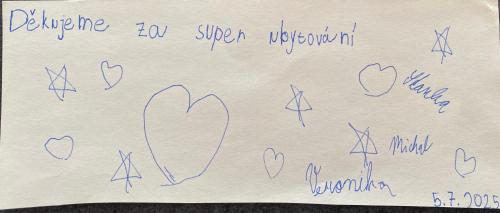 Děkujeme za super ubytování
Stanka
Michal
Veronika
5.7.2025